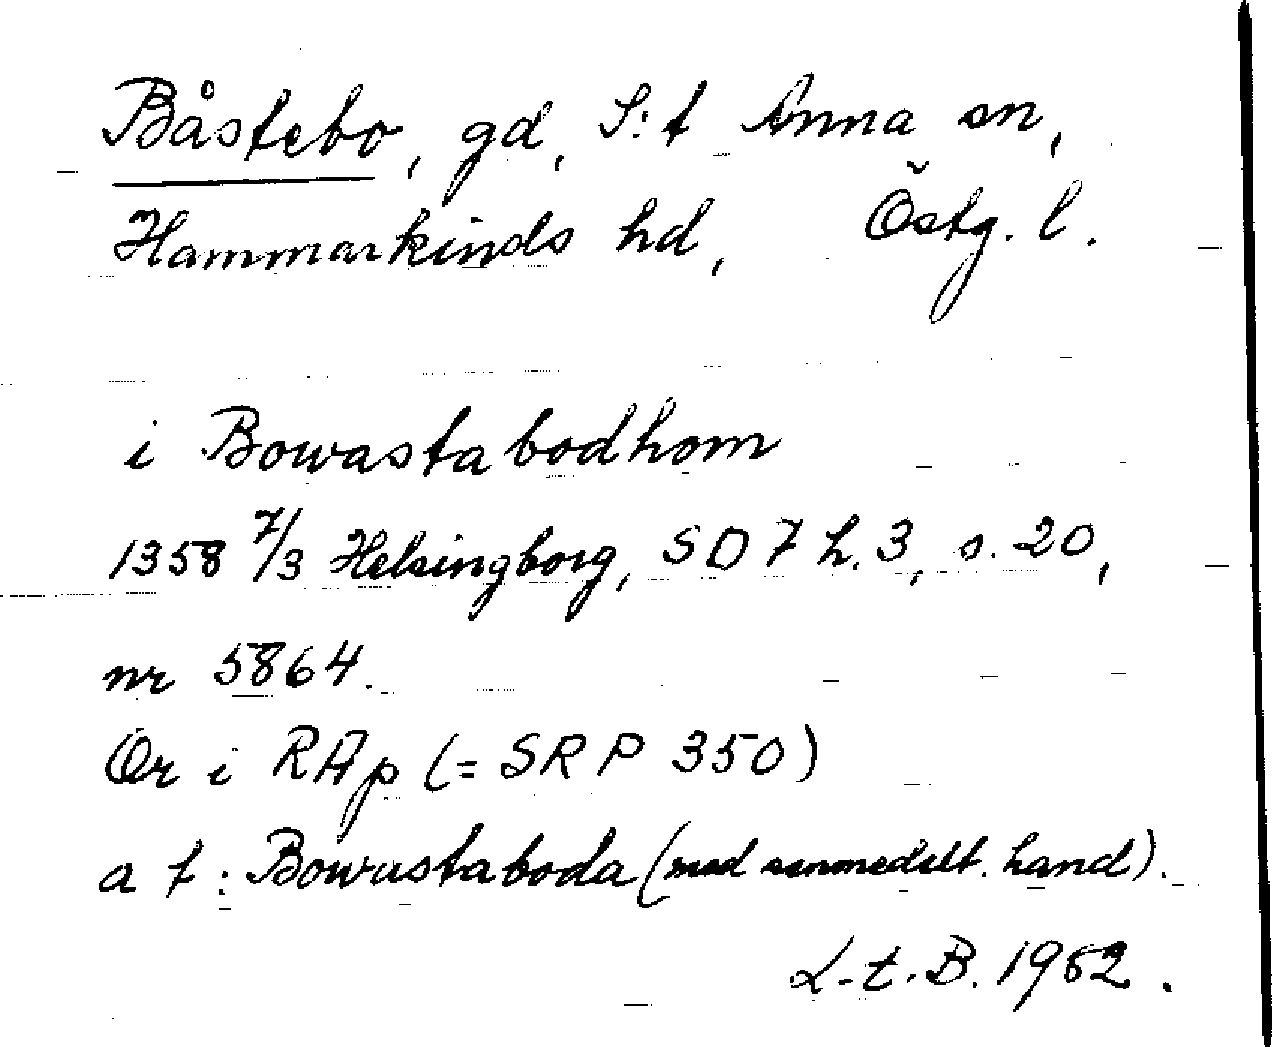 Båstebo, gd, S:t Anna sn,
Hammarkinds hd, Östg. l.
i Bowastabodhom
1358 7/3 Helsingborg, SD 7 h. 3, s. 20,
nr 5864.
Or i RAp (= SRP 350)
a t: Bowastaboda (med senmedelt. hand).
L-t. B. 1962.